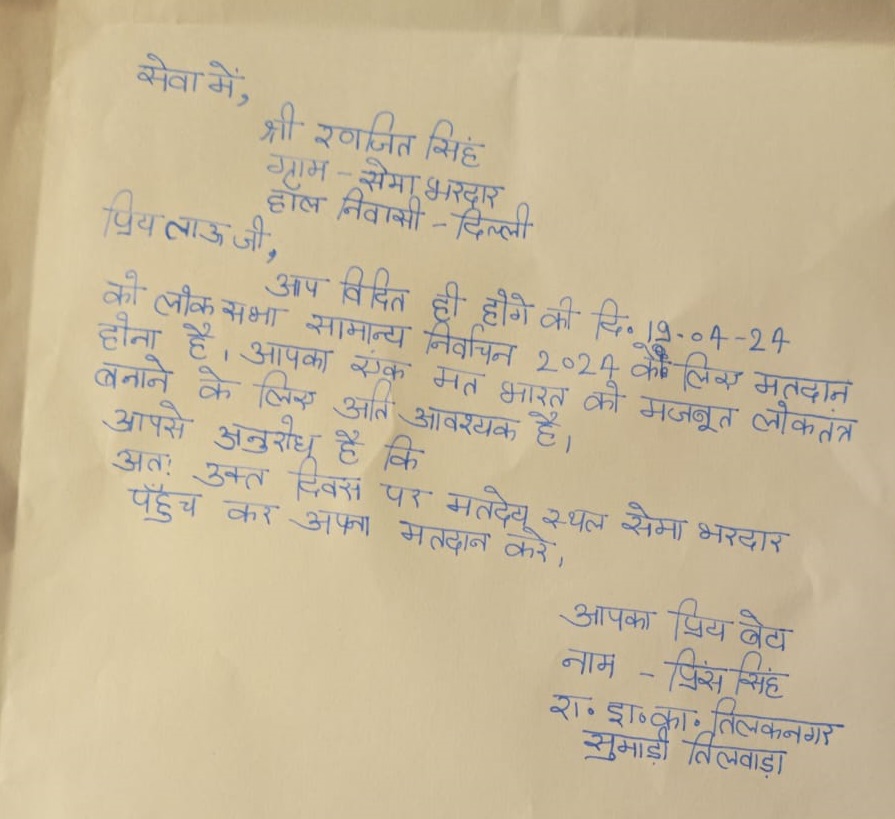 सेवा में,
श्री रणजित सिंह
ग्राम - सेमा भरदार
हाल निवासी - दिल्ली
प्रिय ताऊ जी,
आप विदित ही होंगे की दि. 19-04-24
को लोक सभा सामान्य निर्वाचन 2024 के लिए मतदान
होना है। आपका एक मत भारत को मजबूत लोकतंत्र
बनाने के लिए अति आवश्यक है।
आपसे अनुरोध है कि
अत: उक्त दिवस पर मतदेय स्थल सेमा भरदार
पहुँच कर अपना मतदान करे।
आपका प्रिय बेटा
नाम - प्रिंस सिंह
रा. इ. का. तिलकनगर
सुमाड़ी तिलवाड़ा